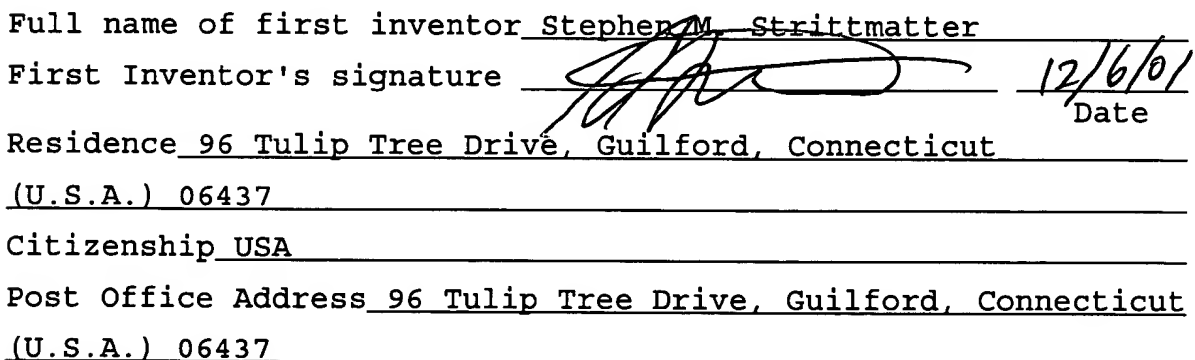 Full name of first inventor Stephen M. Strittmatter
First Inventor's signature 12/6/01
Date
Residence 96 Tulip Tree Drive, Guilford, Connecticut
(U.S.A.) 06437
Citizenship USA
Post Office Address 96 Tulip Tree Drive, Guilford, Connecticut
(U.S.A.) 06437